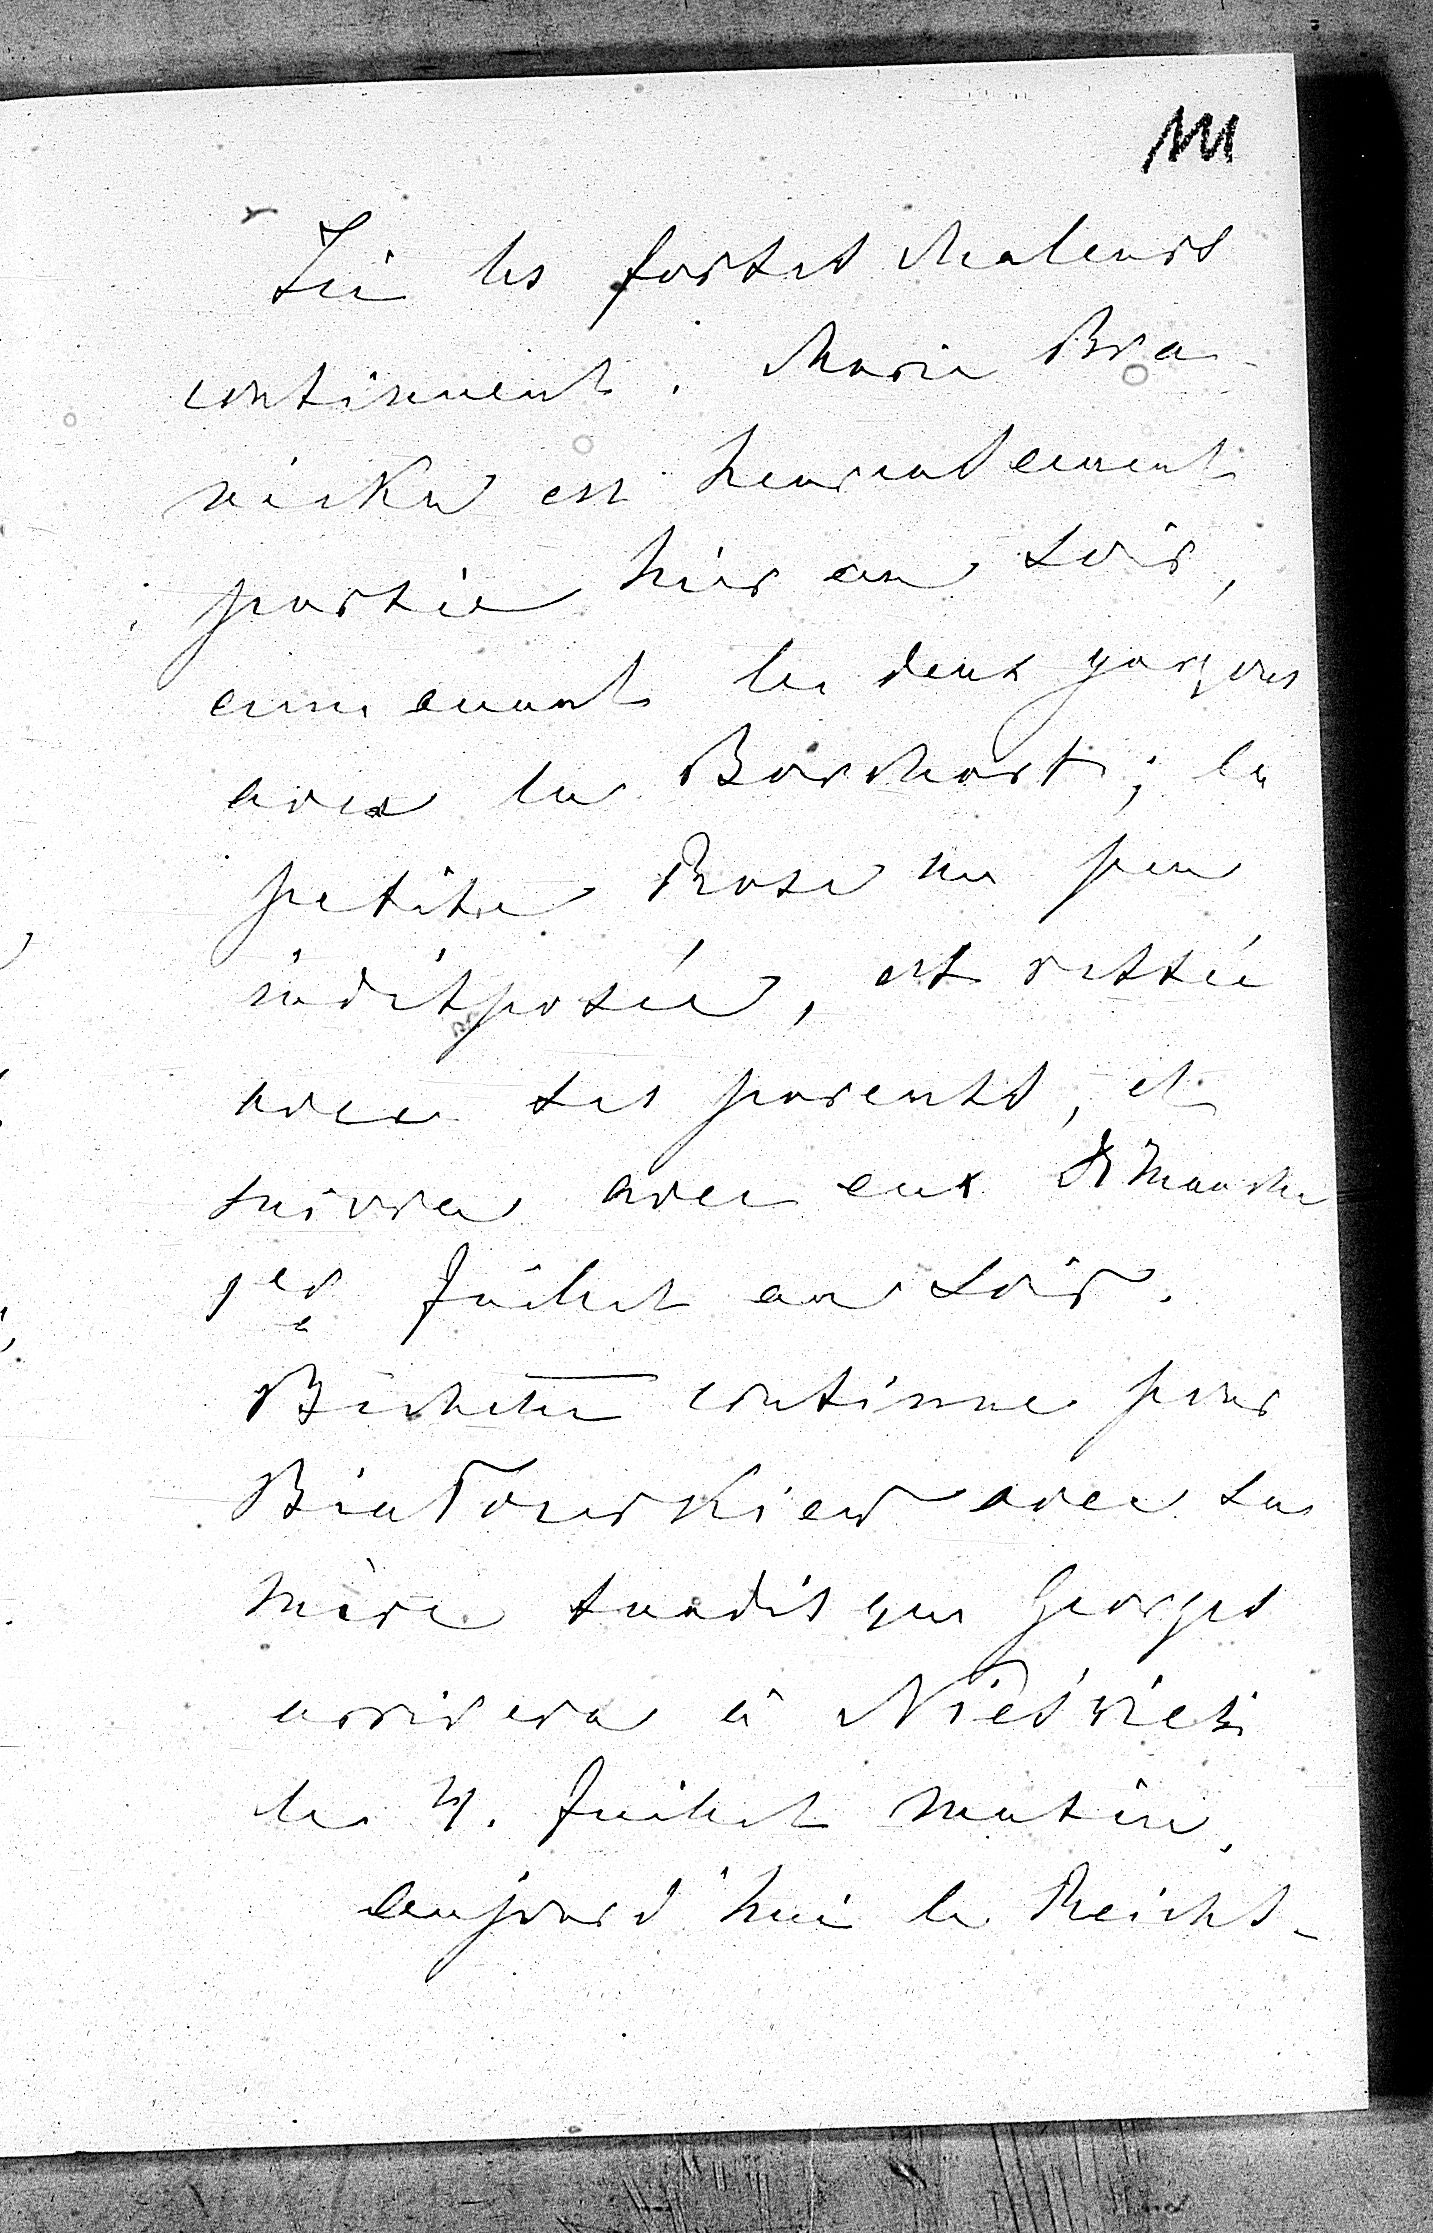 Ici les fortes chaleurs
continuent. Marie Bra-
nicka est heureusement
partie hier au soir,
emmenant les deux garçons
avec la Borchart; la
petite Rose un peu
indisposée, est restée
avec ses parents, et
suivra avec eux Dimanche
1er Juillet au soir.
Bichette continue pour
Białocerkiew avec sa
mère tandis que Georges
arrivera à Nieśwież
le 4. Juillet matin.
Aujourd'hui le Reichs-